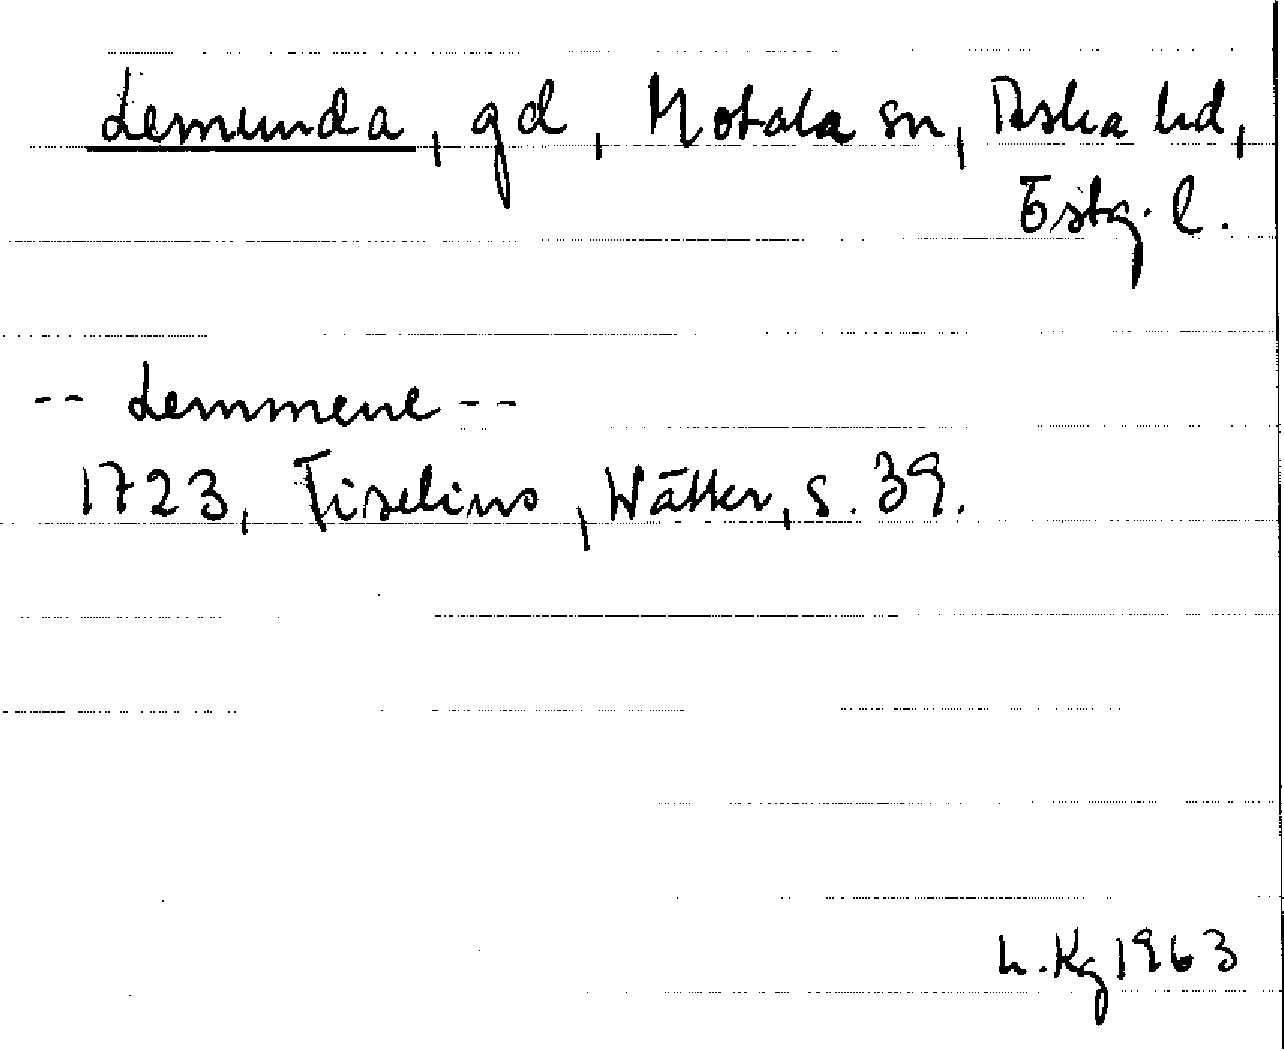 Lemunda, gd, Motala sn, Aska hd,
Östg. l.
-- Lemmene --
1723, Tiselius, Wätter, s. 39.
L. Kg 1963